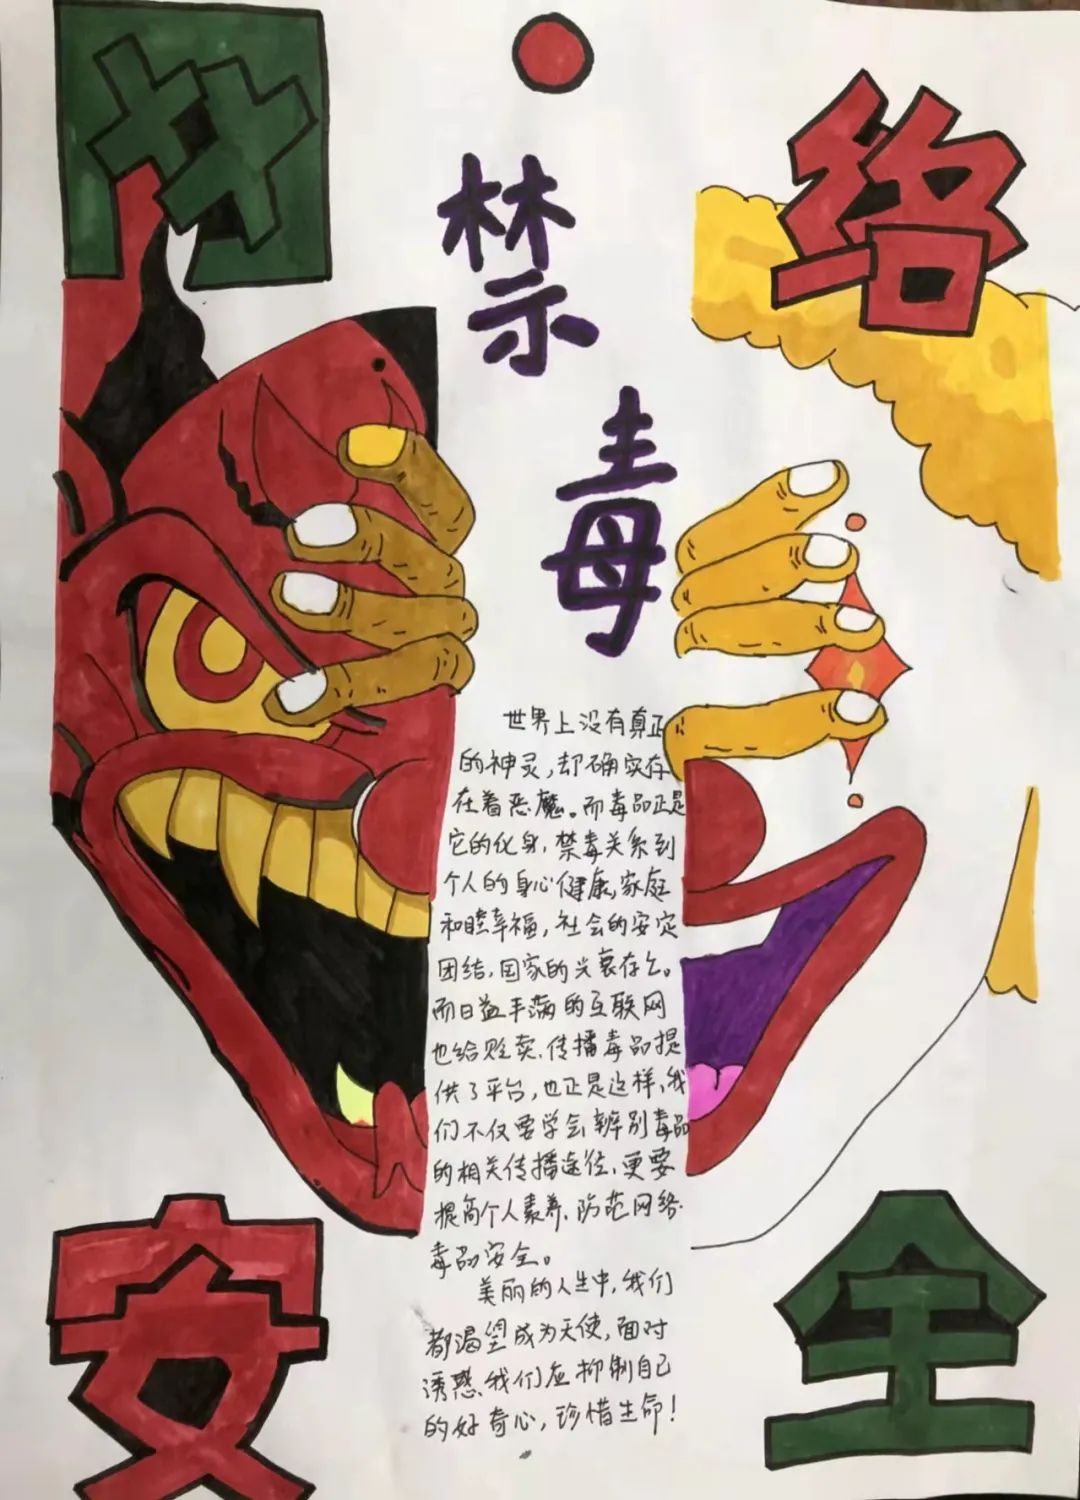 网络
禁毒
世界上没有真正
的神灵,却确实存
在着恶魔。而毒品正是
它的化身,禁毒关系到
个人的身心健康,家庭
和睦幸福,社会的安定
团结,国家的兴衰存亡。
而日益丰满的互联网
也给贩卖、传播毒品提
供了平台,也正是这样,我
们不仅要学会辨别毒品
的相关传播途径,更要
提高个人素养、防范网络
毒品安全。
美丽的人生中,我们
都渴望成为天使,面对
诱惑,我们应抑制自己
的好奇心,珍惜生命!
安全